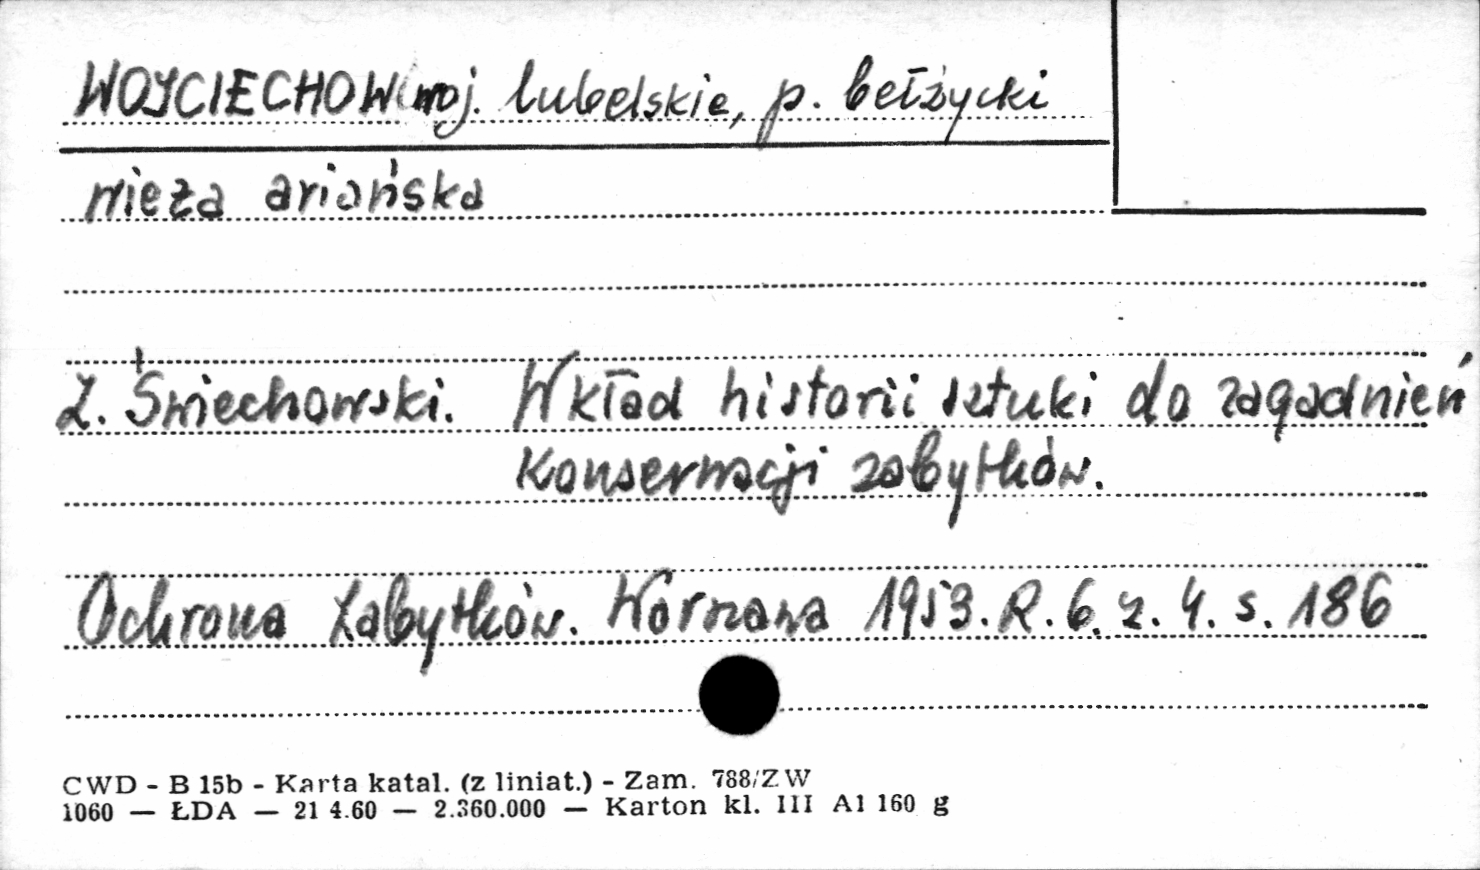 WOJCIECHOW (woj. lubelskie, p. bełżycki
wieża ariańska
Z. Świechowski. Wkład historii sztuki do zagadnień
konserwacji zabytków.
Ochrona Zabytków. Warszawa 1953. R. 6. z. 4. s. 186
CWD - B 15b - Karta katal. (z liniat.) - Zam. 788/ZW
1060 — ŁDA — 21 4.60 — 2.360.000 — Karton kl. III A1 160 g